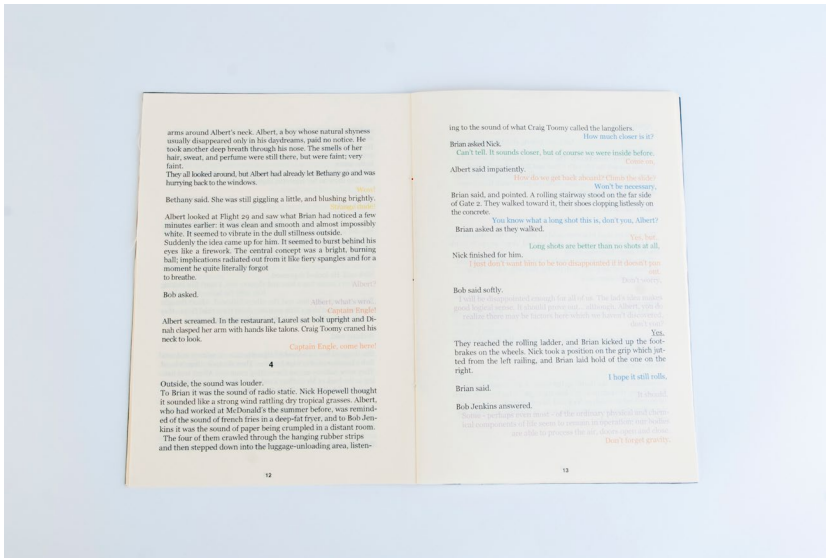 arms around Albert's neck. Albert, a boy whose natural shyness
usually disappeared only in his daydreams, paid no notice. He
took another deep breath through his nose. The smells of her
hair, sweat, and perfume were still there, but were faint; very
faint.
They all looked around, but Albert had already let Bethany go and was
hurrying back to the windows.
Bethany said. She was still giggling a little, and blushing brightly.
Albert looked at Flight 29 and saw what Brian had noticed a few
minutes earlier: it was clean and smooth and almost impossibly
white. It seemed to vibrate in the dull stillness outside.
Suddenly the idea came up for him. It seemed to burst behind his
eyes like a firework. The central concept was a bright, burning
ball; implications radiated out from it like fiery spangles and for a
moment he quite literally forgot
to breathe.
Albert?
Bob asked.
Albert, what's wro
Captain Engle!
Albert screamed. In the restaurant, Laurel sat bolt upright and Di-
nah clasped her arm with hands like talons. Craig Toomy craned his
neck to look.
Captain Engle, come here!
4
Outside, the sound was louder.
To Brian it was the sound of radio static. Nick Hopewell thought
it sounded like a strong wind rattling dry tropical grasses. Albert,
who had worked at McDonald's the summer before, was remind-
ed of the sound of french fries in a deep-fat fryer, and to Bob Jen-
kins it was the sound of paper being crumpled in a distant room.
The four of them crawled through the hanging rubber strips
and then stepped down into the luggage-unloading area, listen-
12
ing to the sound of what Craig Toomy called the langoliers.
How much closer is it?
Brian asked Nick.
Can't tell. It sounds closer, but of course we were inside before.
Come on.
Albert said impatiently.
How do we get back aboard? Climb the slide?
Won't be necessary,
Brian said, and pointed. A rolling stairway stood on the far side
of Gate 2. They walked toward it, their shoes clopping listlessly on
the concrete.
You know what a long shot this is, don't you, Albert?
Brian asked as they walked.
Yes, but
Long shots are better than no shots at all,
Nick finished for him.
I just don't want him to be too disappointed if it doesn't pan
out.
Don't worry,
Bob said softly.
I will be disappointed enough for all of us. The lad's idea makes
good logical sense. It should prove out
don't you?
Yes.
They reached the rolling ladder, and Brian kicked up the foot-
brakes on the wheels. Nick took a position on the grip which jut-
ted from the left railing, and Brian laid hold of the one on the
right.
I hope it still rolls,
Brian said.
It should,
Bob Jenkins answered.
Some - perhaps even most - of the ordinary physical and chem-
ical components of life seem to remain in operation; our bodies
are able to process the air, doors open and close
Don't forget gravity
13